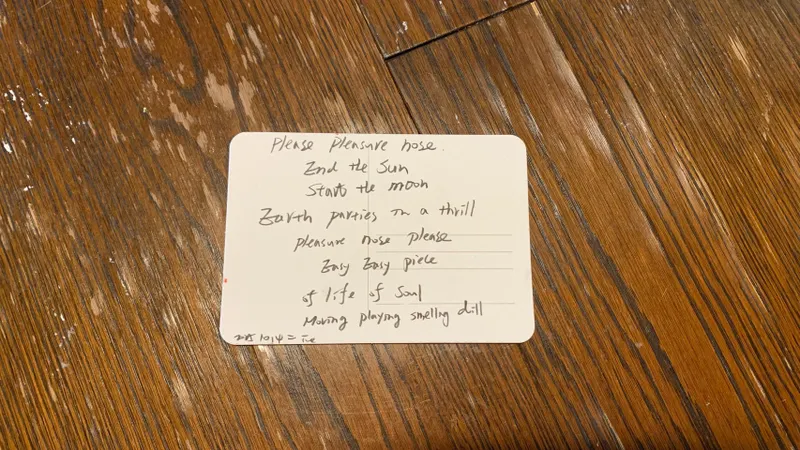 Please pleasure nose.
End the Sun
Starts the moon
Earth parties in a thrill
pleasure nose please
Easy Easy piece
of life of Soul
Moving playing smelling dill